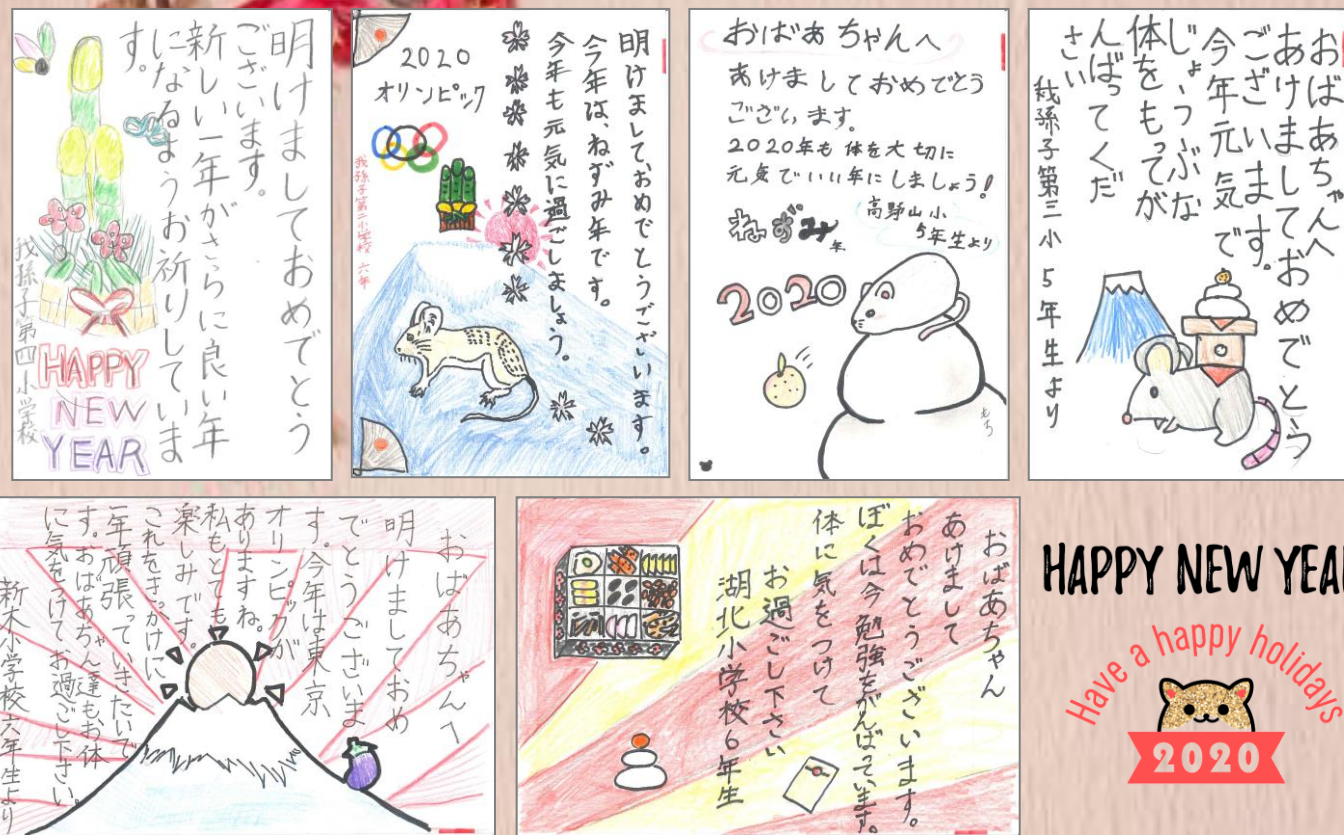 明けましておめでとう
ございます。
新しい一年がさらに良い年
になるようお祈りしていま
す。
我孫子第四小学校
HAPPY
NEW
YEAR
明けまして、おめでとうございます。
今年は、ねずみ年です。
今年も元気に過ごしましょう。
2020
オリンピック
我孫子第二小学校 六年
おばあちゃんへ
あけましておめでとう
ございます。
2020年も体を大切に
元気でいい年にしましょう!
高野山小
5年生より
ねずみ年
2020
もち
おばあちゃんへ
あけましておめでとう
ございます。
今年元気で
じょうぶな
体をもってが
んばってくだ
さい
我孫子第三小 5年生より
おばあちゃんへ
明けましておめ
でとうございま
す。今年は東京
オリンピックが
ありますね。
私もとても
楽しみです。
これをきっかけに
一年頑張っていきたいで
す。おばあちゃん達もお体
に気をつけてお過ごし下さい。
新木小学校六年生より
おばあちゃん
あけまして
おめでとうございます。
ぼくは今勉強をがんばっています。
体に気をつけて
お過ごし下さい
湖北小学校6年生
HAPPY NEW YEA
Have a happy holidays
2020